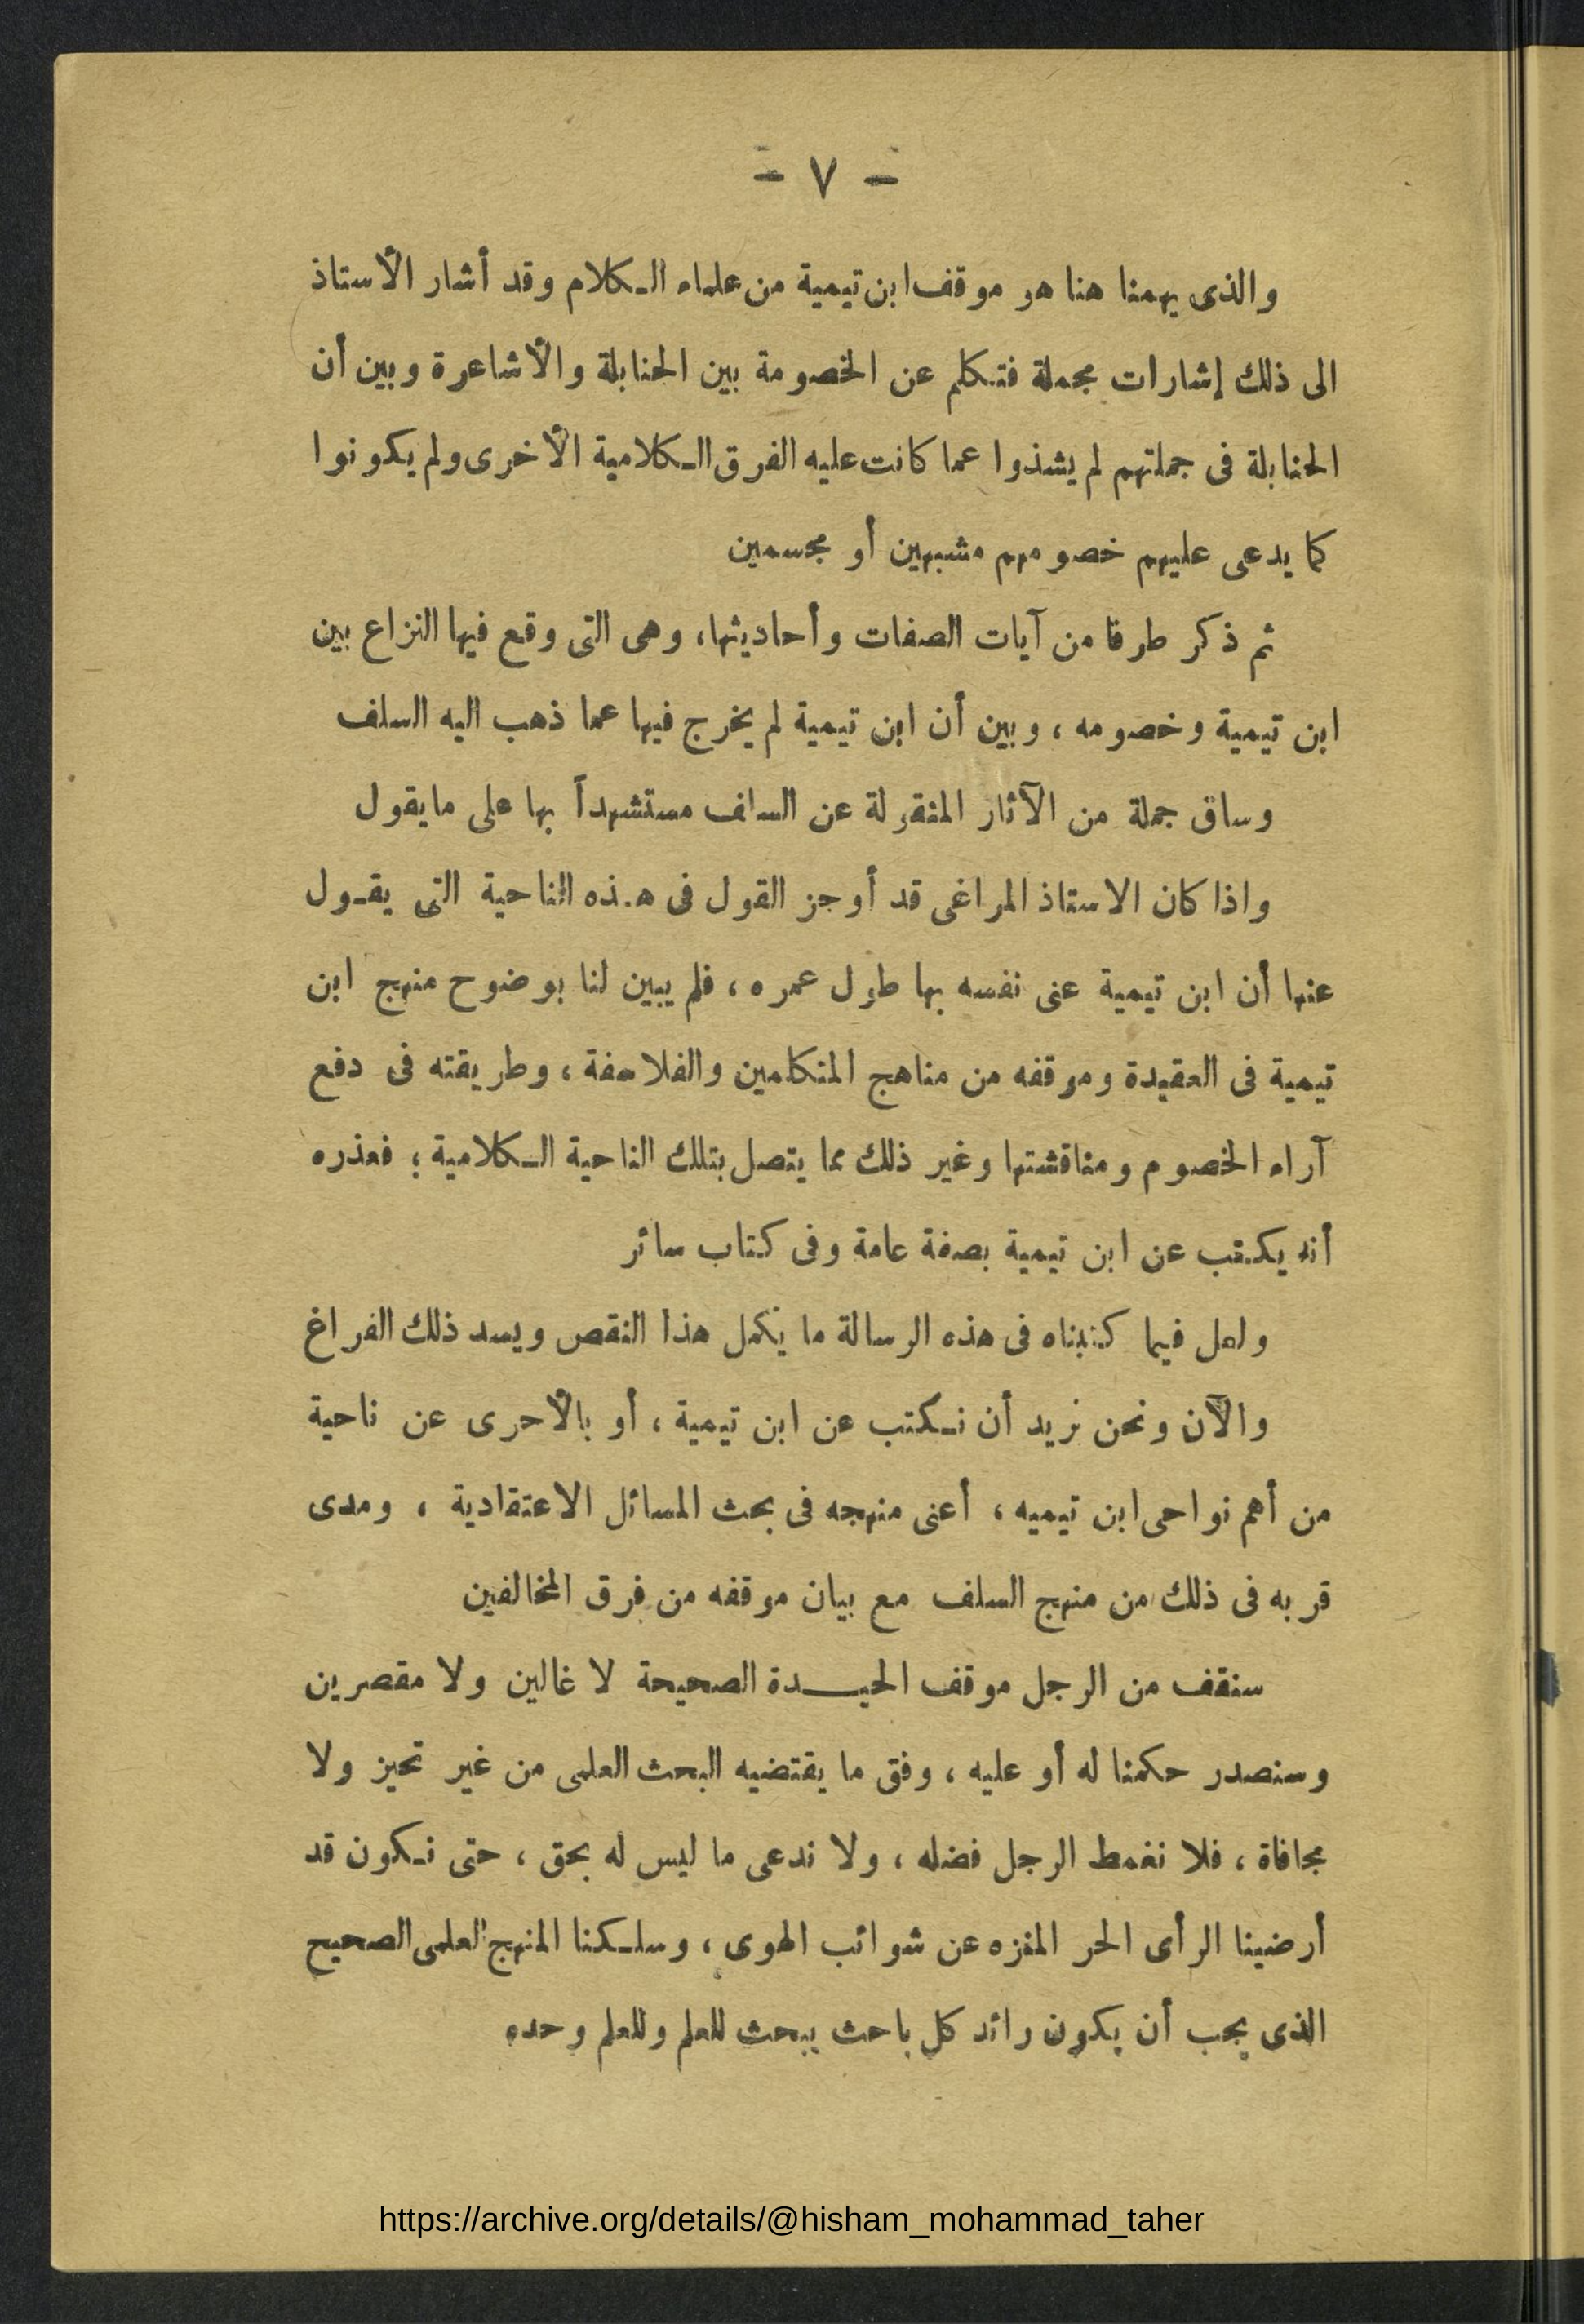 - ٧ -
والذى يهمنا هنا هو موقف ابن تيمية من علماء الكلام وقد أشار الأستاذ
الى ذلك إشارات مجملة فتكلم عن الخصومة بين الحنابلة والأشاعرة وبين أن
الحنابلة فى جملتهم لم يشذوا عما كانت عليه الفرق الكلامية الأخرى ولم يكونوا
كما يدعى عليهم خصومهم مشبهين أو مجسمين
ثم ذكر طرفا من آيات الصفات وأحاديثها، وهى التى وقع فيها النزاع بين
ابن تيمية وخصومه ، وبين أن ابن تيمية لم يخرج فيها عما ذهب اليه السلف
وساق جملة من الآثار المنقولة عن السلف مستشهداً بها على مايقول
واذا كان الاستاذ المراغى قد أوجز القول فى هذه الناحية التى يقول
عنها أن ابن تيمية عنى نفسه بها طول عمره ، فلم يبين لنا بوضوح منهج ابن
تيمية فى العقيدة وموقفه من مناهج المتكلمين والفلاسفة ، وطريقته فى دفع
آراء الخصوم ومناقشتها وغير ذلك مما يتصل بتلك الناحية الكلامية ؛ فعذره
أنه يكتب عن ابن تيمية بصفة عامة وفى كتاب سائر
ولعل فيما كتبناه فى هذه الرسالة ما يكمل هذا النقص ويسد ذلك الفراغ
والآن ونحن نريد أن نكتب عن ابن تيمية ، أو بالأحرى عن ناحية
من أهم نواحى ابن تيميه ، أعنى منهجه فى بحث المسائل الاعتقادية ، ومدى
قربه فى ذلك من منهج السلف مع بيان موقفه من فرق المخالفين
سنقف من الرجل موقف الحيدة الصحيحة لا غالين ولا مقصرين
وسنصدر حكمنا له أو عليه ، وفق ما يقتضيه البحث العلمى من غير تحيز ولا
مجافاة ، فلا نغمط الرجل فضله ، ولا ندعى ما ليس له بحق ، حتى نكون قد
أرضينا الرأى الحر المنزه عن شوائب الهوى ، وسلكنا المنهج العلمى الصحيح
الذى يجب أن يكون رائد كل باحث يبحث للعلم وللعلم وحده
https://archive.org/details/@hisham_mohammad_taher